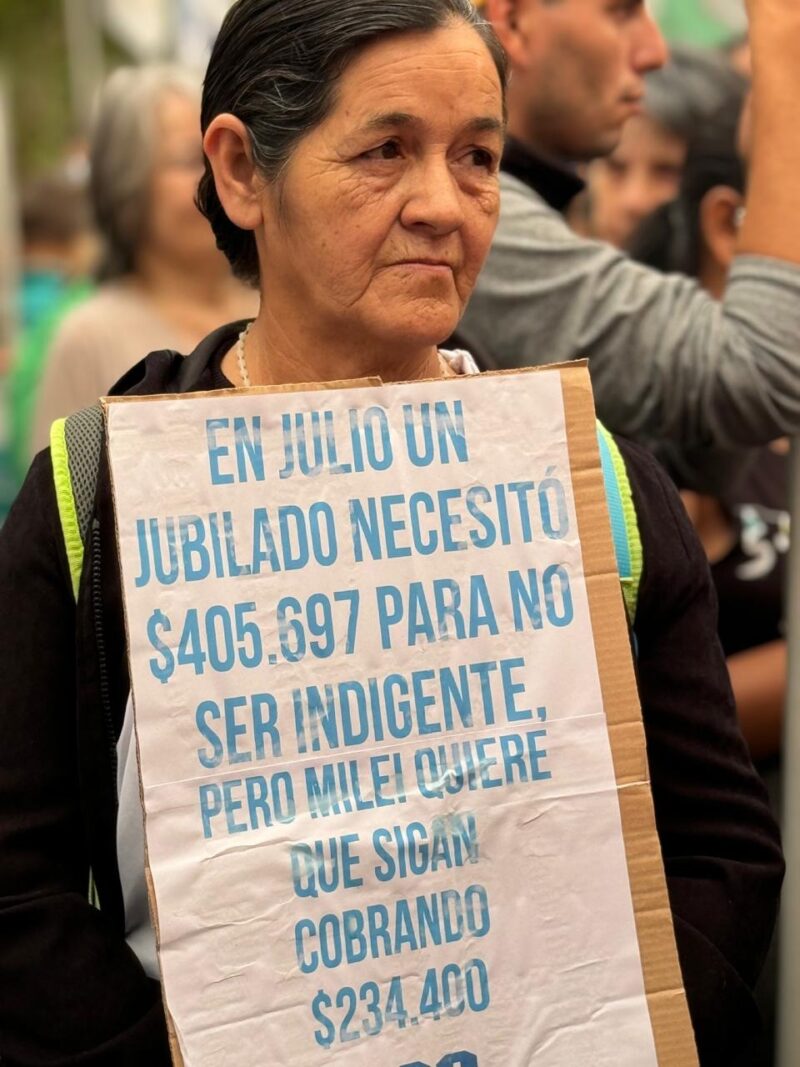 EN JULIO UN
JUBILADO NECESITÓ
$405.697 PARA NO
SER INDIGENTE,
PERO MILEI QUIERE
QUE SIGAN
COBRANDO
$234.400